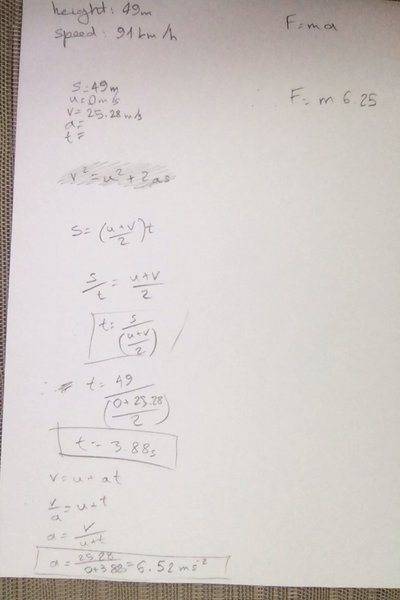 height: 49m
speed: 91km/h
F=ma
F= m 6.25
s=49m
u=0m/s
v=25.28m/s
a=
t=
v²=u²+2as
s=(u+v/2)t
s/t = u+v/2
t= s/(u+v/2)
t= 49/(0+25.28/2)
t= 3.88s
v=u+at
v/a=u+t
a= v/u+t
a= 25.28/0+3.88=6.52ms⁻²